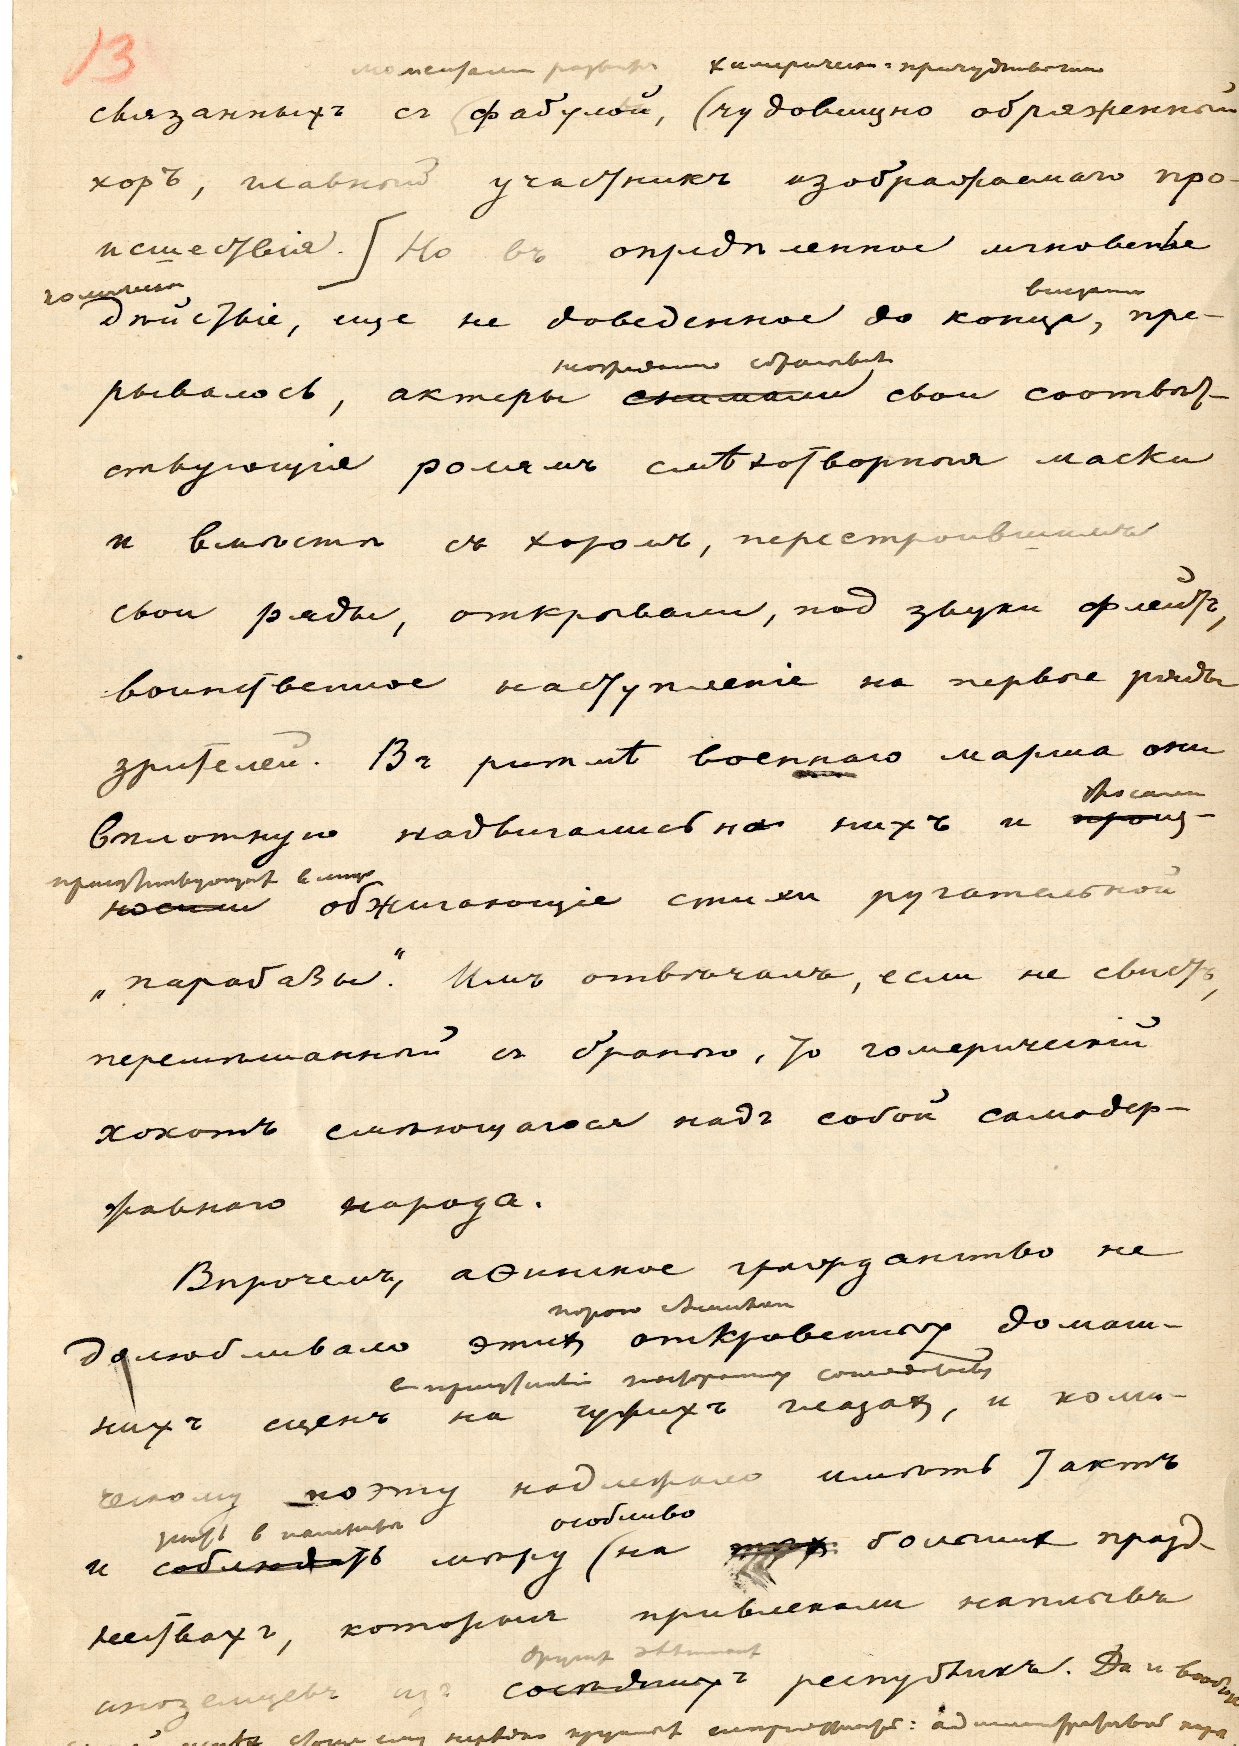 13
химерически-причудливый
связанныхъ съ фабулой, (чудовищно обряженный
хоръ, главный участникъ изображаемаго про-
исшествія.] Но въ опредѣленное мгновенье
дѣйствіе, еще не доведенное до конца, пре-
рывалось, актеры снимали свои соотвѣт-
ствующія ролямъ смѣхотворныя маски
и вмѣстѣ съ хоромъ, перестроившимъ
свои ряды, открывали, под звуки флейтъ,
воинственное наступленіе на первые ряды
зрителей. Въ ритмѣ военнаго марша они
бросали
вплотную надвигались на нихъ и произ-
носили обжигающіе стихи ругательной
„парабазы“. Имъ отвѣчалъ, если не свистъ,
перемѣшанный съ бранью, то гомерическій
хохотъ смѣющагося надъ собой самодер-
жавнаго народа.
Впрочемъ, аѳинское гражданство не
порою слишком
долюбливало этих откровенных домаш-
в присутствіи
нихъ сценъ на чужихъ глазах, и коми-
ческому поэту надлежало имѣть тактъ
особливо
и соблюдать мѣру (на больших празд-
нествахъ, которыя привлекали наплывъ
других
иноземцевъ изъ сосѣднихъ республикъ. Да и вообще